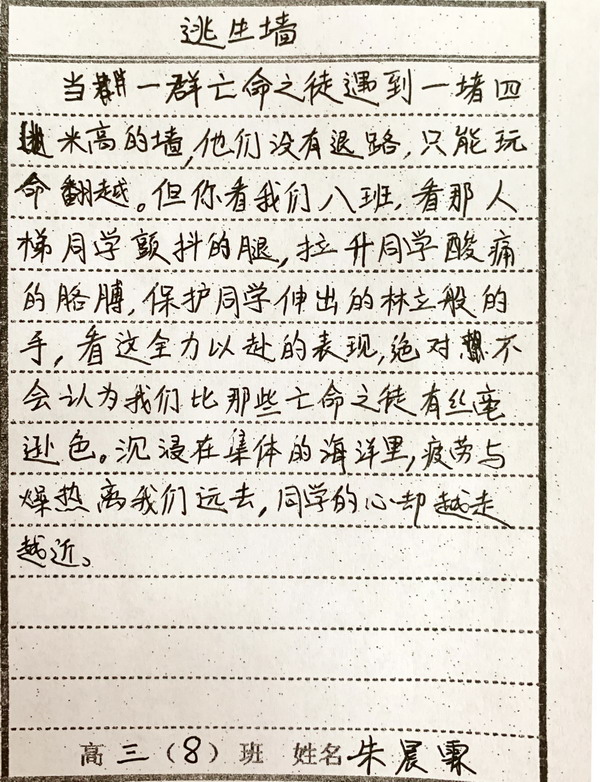 逃生墙
当一群亡命之徒遇到一堵四
米高的墙,他们没有退路,只能玩
命翻越。但你看我们八班,看那人
梯同学颤抖的腿,拉升同学酸痛
的胳膊,保护同学伸出的林立般的
手,看这全力以赴的表现,绝对不
会认为我们比那些亡命之徒有丝毫
逊色。沉浸在集体的海洋里,疲劳与
燥热离我们远去,同学的心却越走
越近。
高三(8)班 姓名 朱晨霖